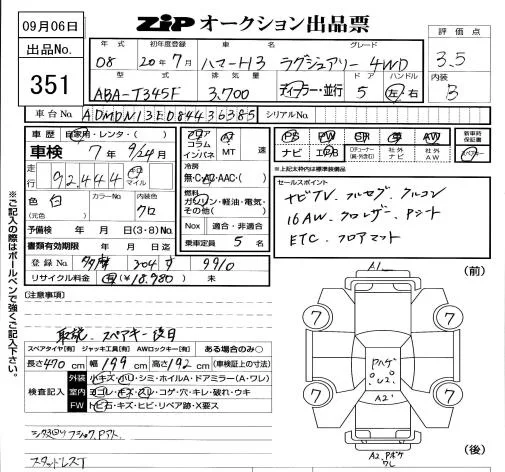 09月06日
ZIP オークション出品票
評価点
3.5
出品No.
351
年式 初年度登録 車名 グレード
08 20年7月 ハマーH3 ラグジュアリー 4WD
型式 排気量 ドア ハンドル
ABA-T345F 3,700 ディーラー・並行 5 左・右
内装
B
車台No. ADMDN13E084436385 シリアルNo.
車歴 自家用・レンタ・( )
車検 7年9/24月
走行 92,444 キロ マイル
色 白 カラーNo. 内装色 クロ
(元色)
予備検 年 月 日(3・8)No.
書類有効期限 年 月 日迄
登録No. 304 す 9910
リサイクル料金 有(¥18,980) 未
フロア コラム インパネ AT MT 速
冷房
無・C・AC・AAC・( )
燃料
ガソリン・軽油・電気・その他( )
Nox 適合・非適合
乗車定員 5 名
PS PW SR 革 AW
新車時保証書
ナビ エアB 社外ナビ 社外AW
※上記太枠内は標準装備品
セールスポイント
ナビTV フルセグ クルコン
16AW クロレザー Pシート
ETC フロアマット
※ご記入の際はボールペンで強くご記入下さい。
[注意事項]
取説、スペアキー後日
スペアタイヤ[有] ジャッキ工具[有] AWロックキー[有] ある場合のみ○
長さ470cm 幅199cm 高さ192cm (車検証上の寸法)
検査記入 外装 小キズ・凹・シミ・ホイルA・ドアミラー(A・ワレ)
室内 ヨゴレ・キズ・スレ・コゲ・穴・キレ・破れ・ウキ
FW トビ石・キズ・ヒビ・リペア跡・X要ス
スタッドレスT
A1
(前)
7
7
7
7
ハゲ
U2
A2
(後)
A2,
ワレ